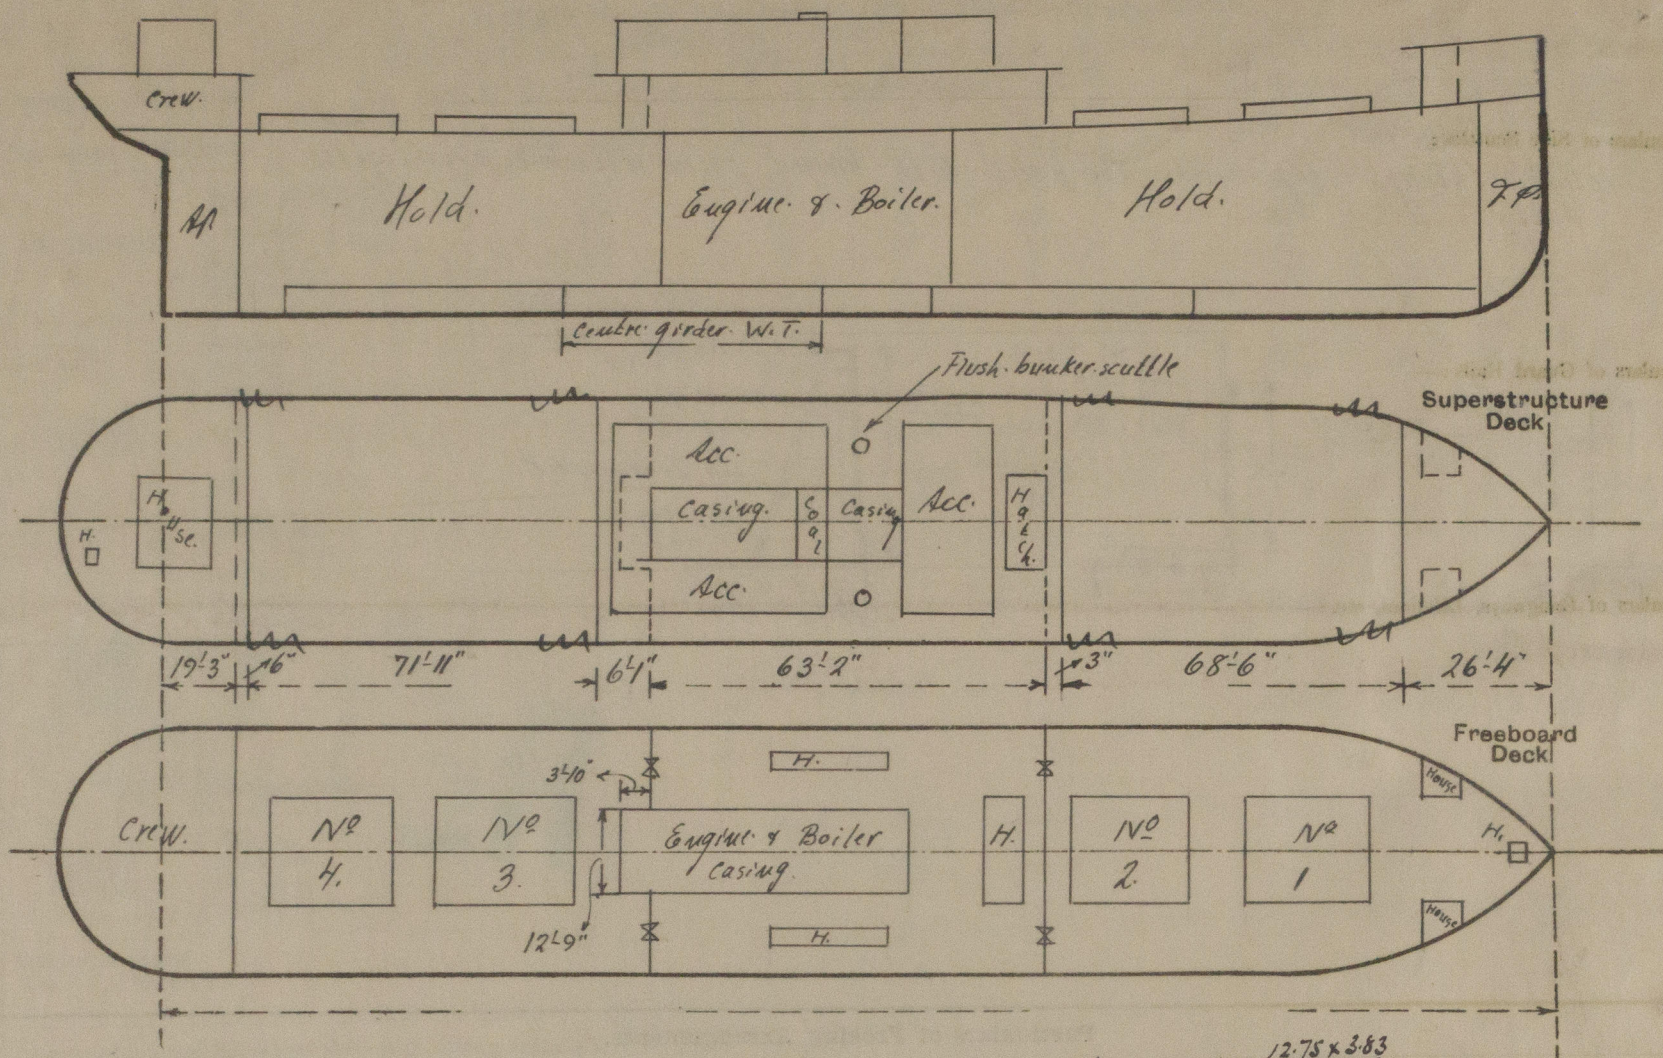 Crew.
Ap.
Hold.
Engine. & Boiler.
Hold.
F.P.
Centre girder W.T.
Flush bunker scuttle
Superstructure
Deck
Acc.
H
o
use.
H.
Casing.
Coal
Casing
Acc.
Hatch.
Acc.
19'-3"
6"
71'-11"
6'-1"
63'-2"
3"
68'-6"
26'-4"
Freeboard
Deck
H.
3'-10"
House
Crew.
Nº
4.
Nº
3.
Engine & Boiler
Casing.
H.
Nº
2.
Nº
1
H.
House
12'-9"
H.
12.75 x 3.83